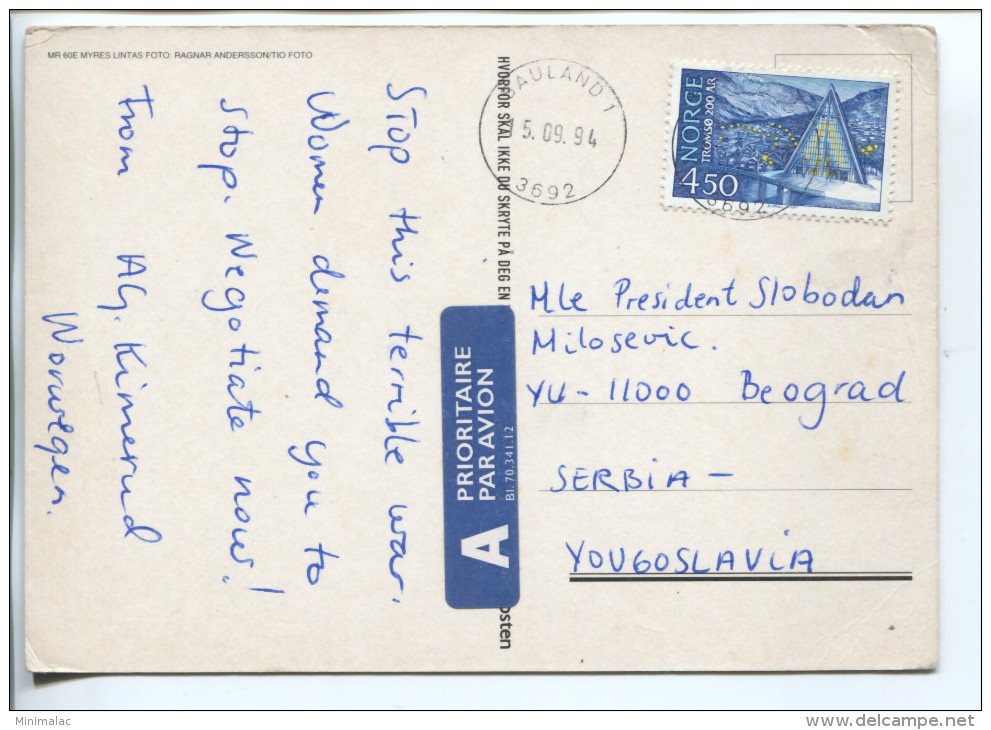 MR 60E MYRES LINTAS FOTO: RAGNAR ANDERSSON/TIO FOTO
Stop this terrible war.
Women demand you to
stop. Negotiate now!
From AG. Kimerud
Norwegen.
HVORFOR SKAL IKKE DU SKRYTE PÅ DEG EN
osten
A
PRIORITAIRE
PAR AVION
Bl. 70.341.12
RAULAND 1
5.09.94
3692
NORGE
TROMSØ 200 ÅR
450
3692
Mle President Slobodan
Milosevic.
YU - 11000 Beograd
SERBiA -
YOUGOSLAViA
Minimalac
www.delcampe.net